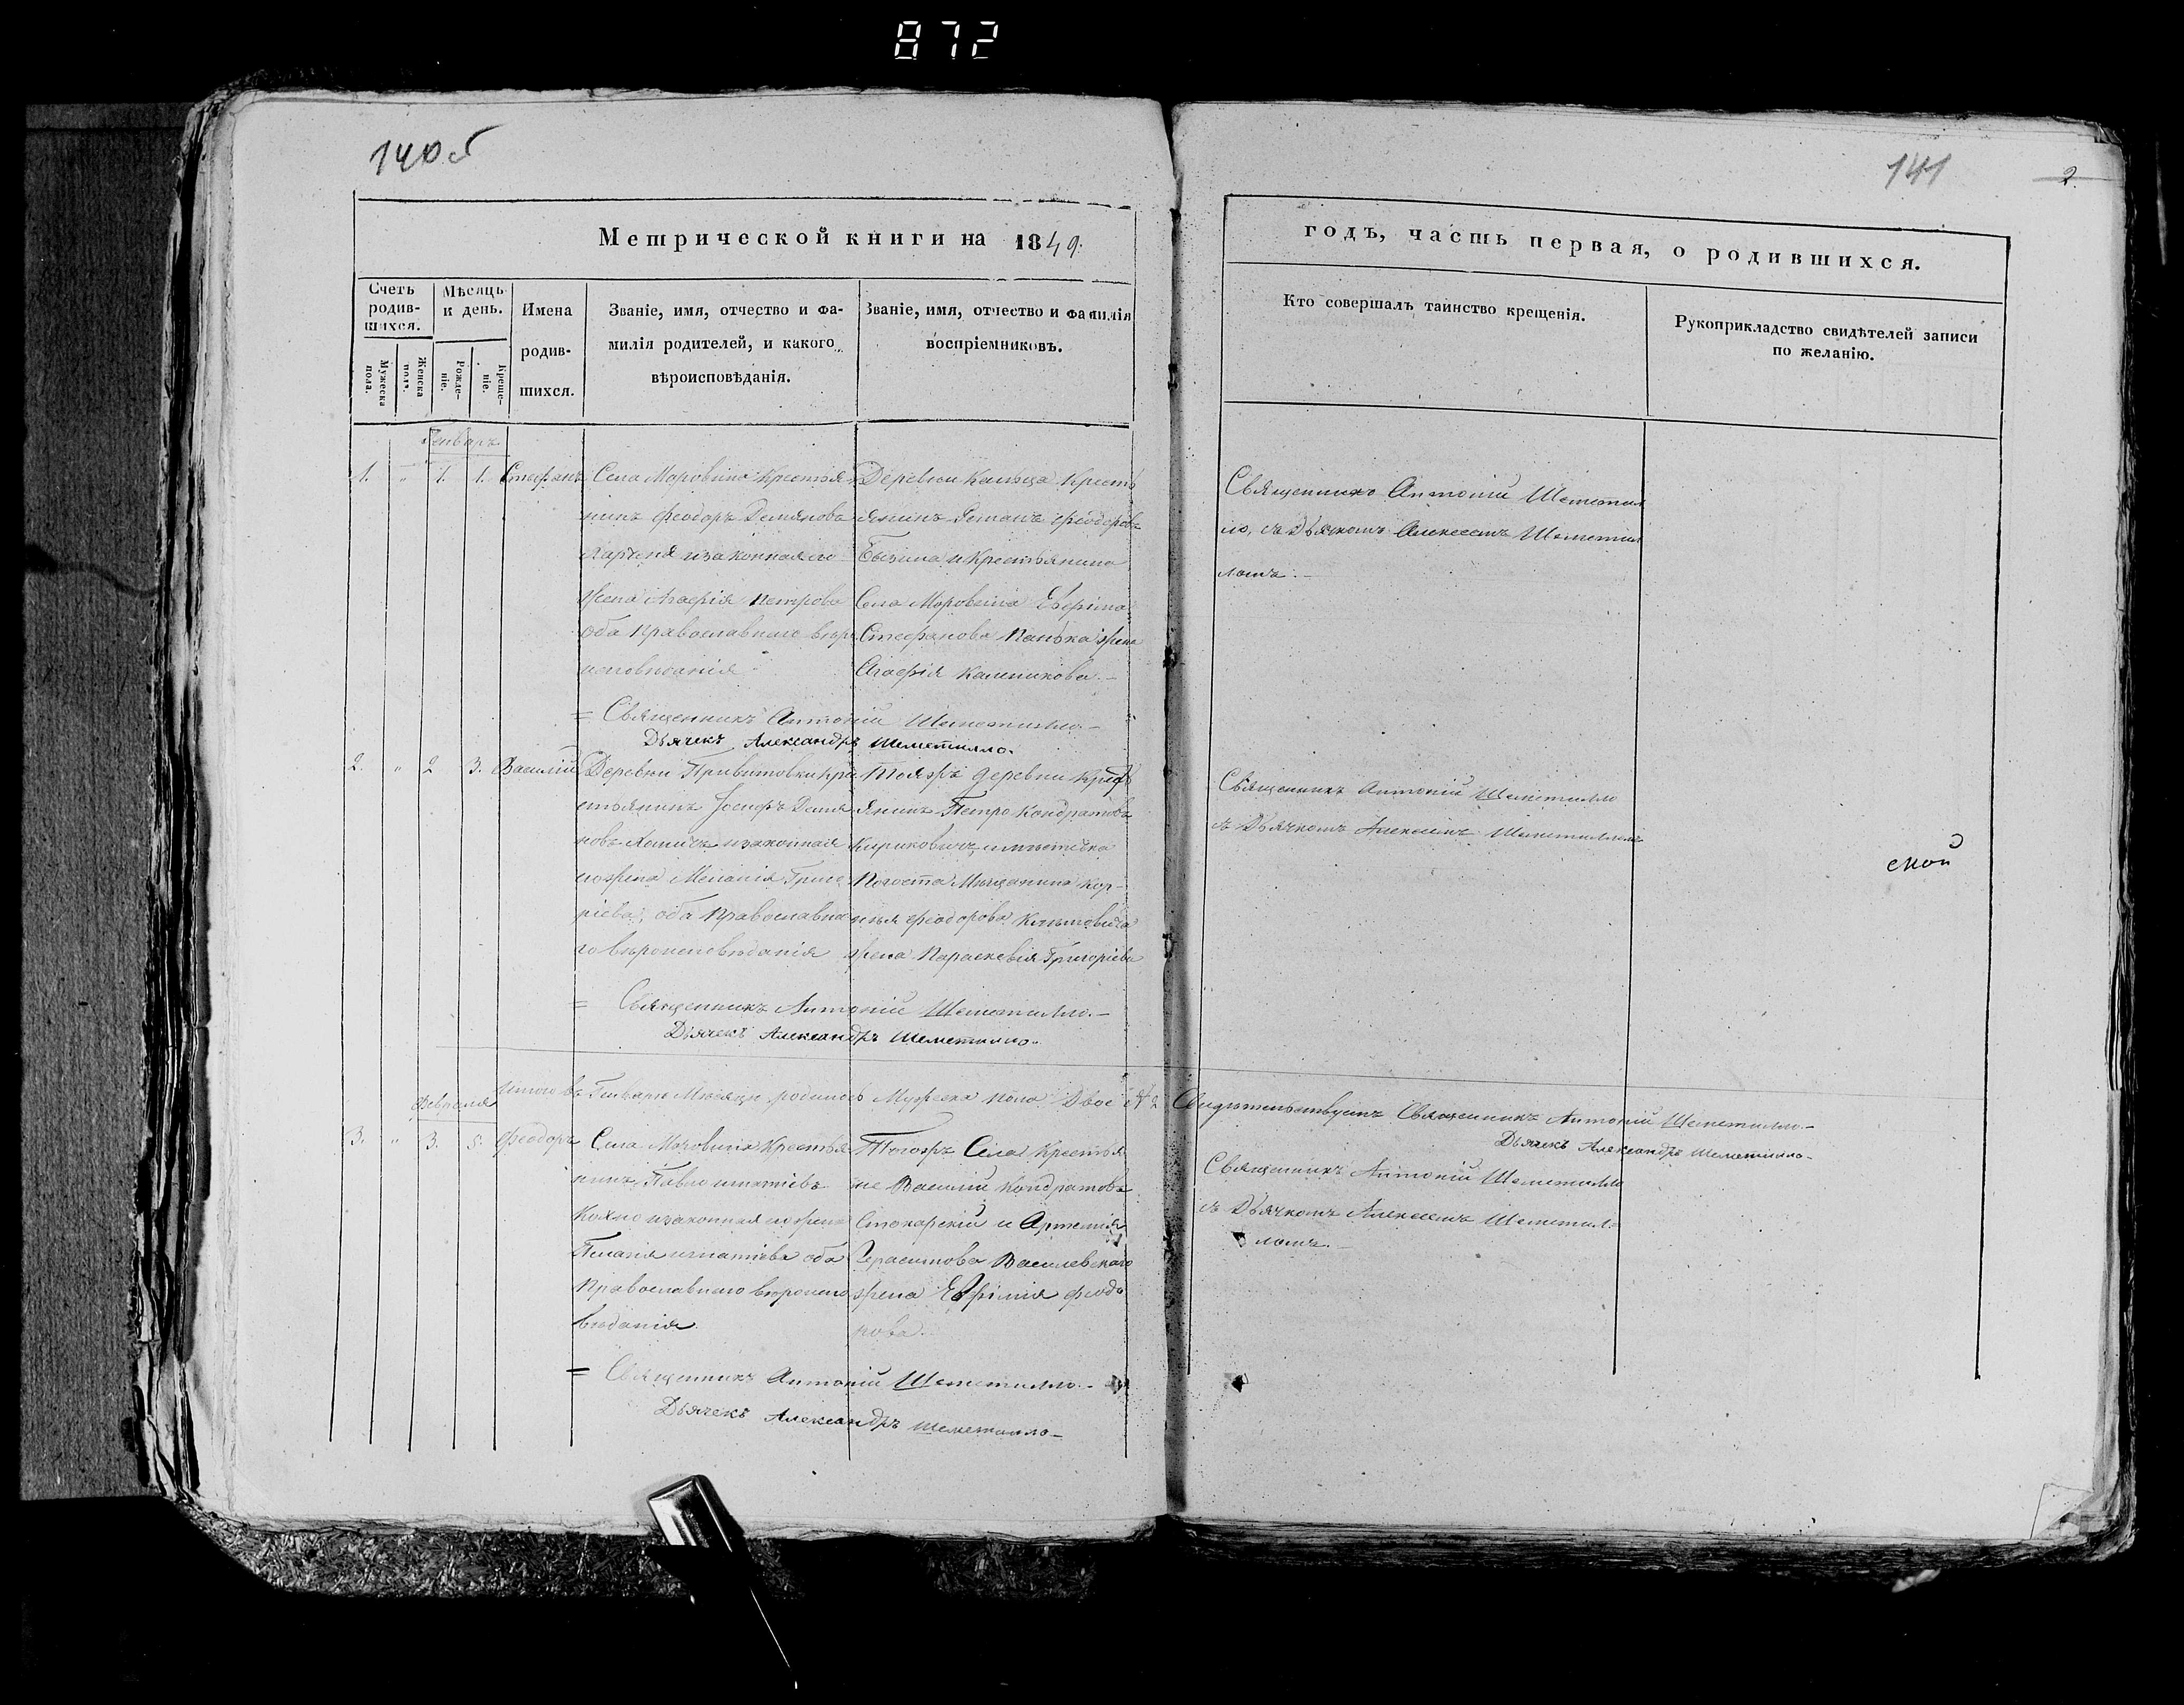 872
140 об
141
2.
Метрической книги на 1849.
годъ, часть первая, о родившихся.
Счетъ родив-шихся.
Мѣсяцъ и день.
Имена родив-шихся.
Званіе, имя, отчество и фа-
милія родителей, и какого
вѣроисповѣданія.
Званіе, имя, отчество и фамилія
воспріемниковъ.
Кто совершалъ таинство крещенія.
Рукоприкладство свидѣтелей записи
по желанію.
Мужеска пола.
Женска пола.
Рожде-ніе.
Креще-ніе.
Январь
1. " 1. 1. Стефанъ
Села Моровина Крестья
нинъ Феодоръ Демяновъ
изаконная его
жена Агафія Петрова
оба Православнаго вѣро
исповѣданія
Деревни Кальца Кресть
янинъ Романъ Феодоровъ
и Крестьянина
Села Моровина
Стефанова Панька жена
Агафія Калиникова.
Священникъ Антоній Шеметил
ло, съ Дьячкомъ Алексеемъ Шеметил
ломъ.
= Священникъ Антоній Шеметилло.
Дьячекъ Александръ Шеметилло.
2. " 2 3. Василій
Деревни Привитовки Кре
стьянинъ Іосифъ Демя
новъ изаконная
его жена Меланія Григо
ріева, оба Православна
го вѣроисповѣданія
Тояжъ деревни Крест
янинъ Петро Кондратовъ
Кириковичъ имѣстечка
Погоста Мещанина Кор-
нѣя Феодорова
жена Параскевія Григоріева
Священникъ Антоній Шеметилло
съ Дьячкомъ Алексеемъ Шеметилломъ
ской
= Священникъ Антоній Шеметилло.
Дьячекъ Александръ Шеметилло.
Итого въ Генварѣ Мѣсяцѣ родилось Мужеска пола Двое № 2
Свидѣтельствуемъ Священникъ Антоній Шеметилло.
Дьячекъ Александръ Шеметилло.
Февраля
3. " 3. 5. Феодоръ
Села Моровина Крестья
нинъ Павло Игнатіевъ
изаконная его жена
Пелагія Игнатіева оба
Православнаго вѣроиспо
вѣданія.
Тогожъ Села Крестья
не Василій Кондратовъ
Стокарскій и Артемія
Герасимова Василевскаго
жена Евфімія Феодо
рова.
Священникъ Антоній Шеметилло
съ Дьячкомъ Алексеемъ Шеметил-
ломъ.
= Священникъ Антоній Шеметилло.
Дьячекъ Александръ Шеметилло